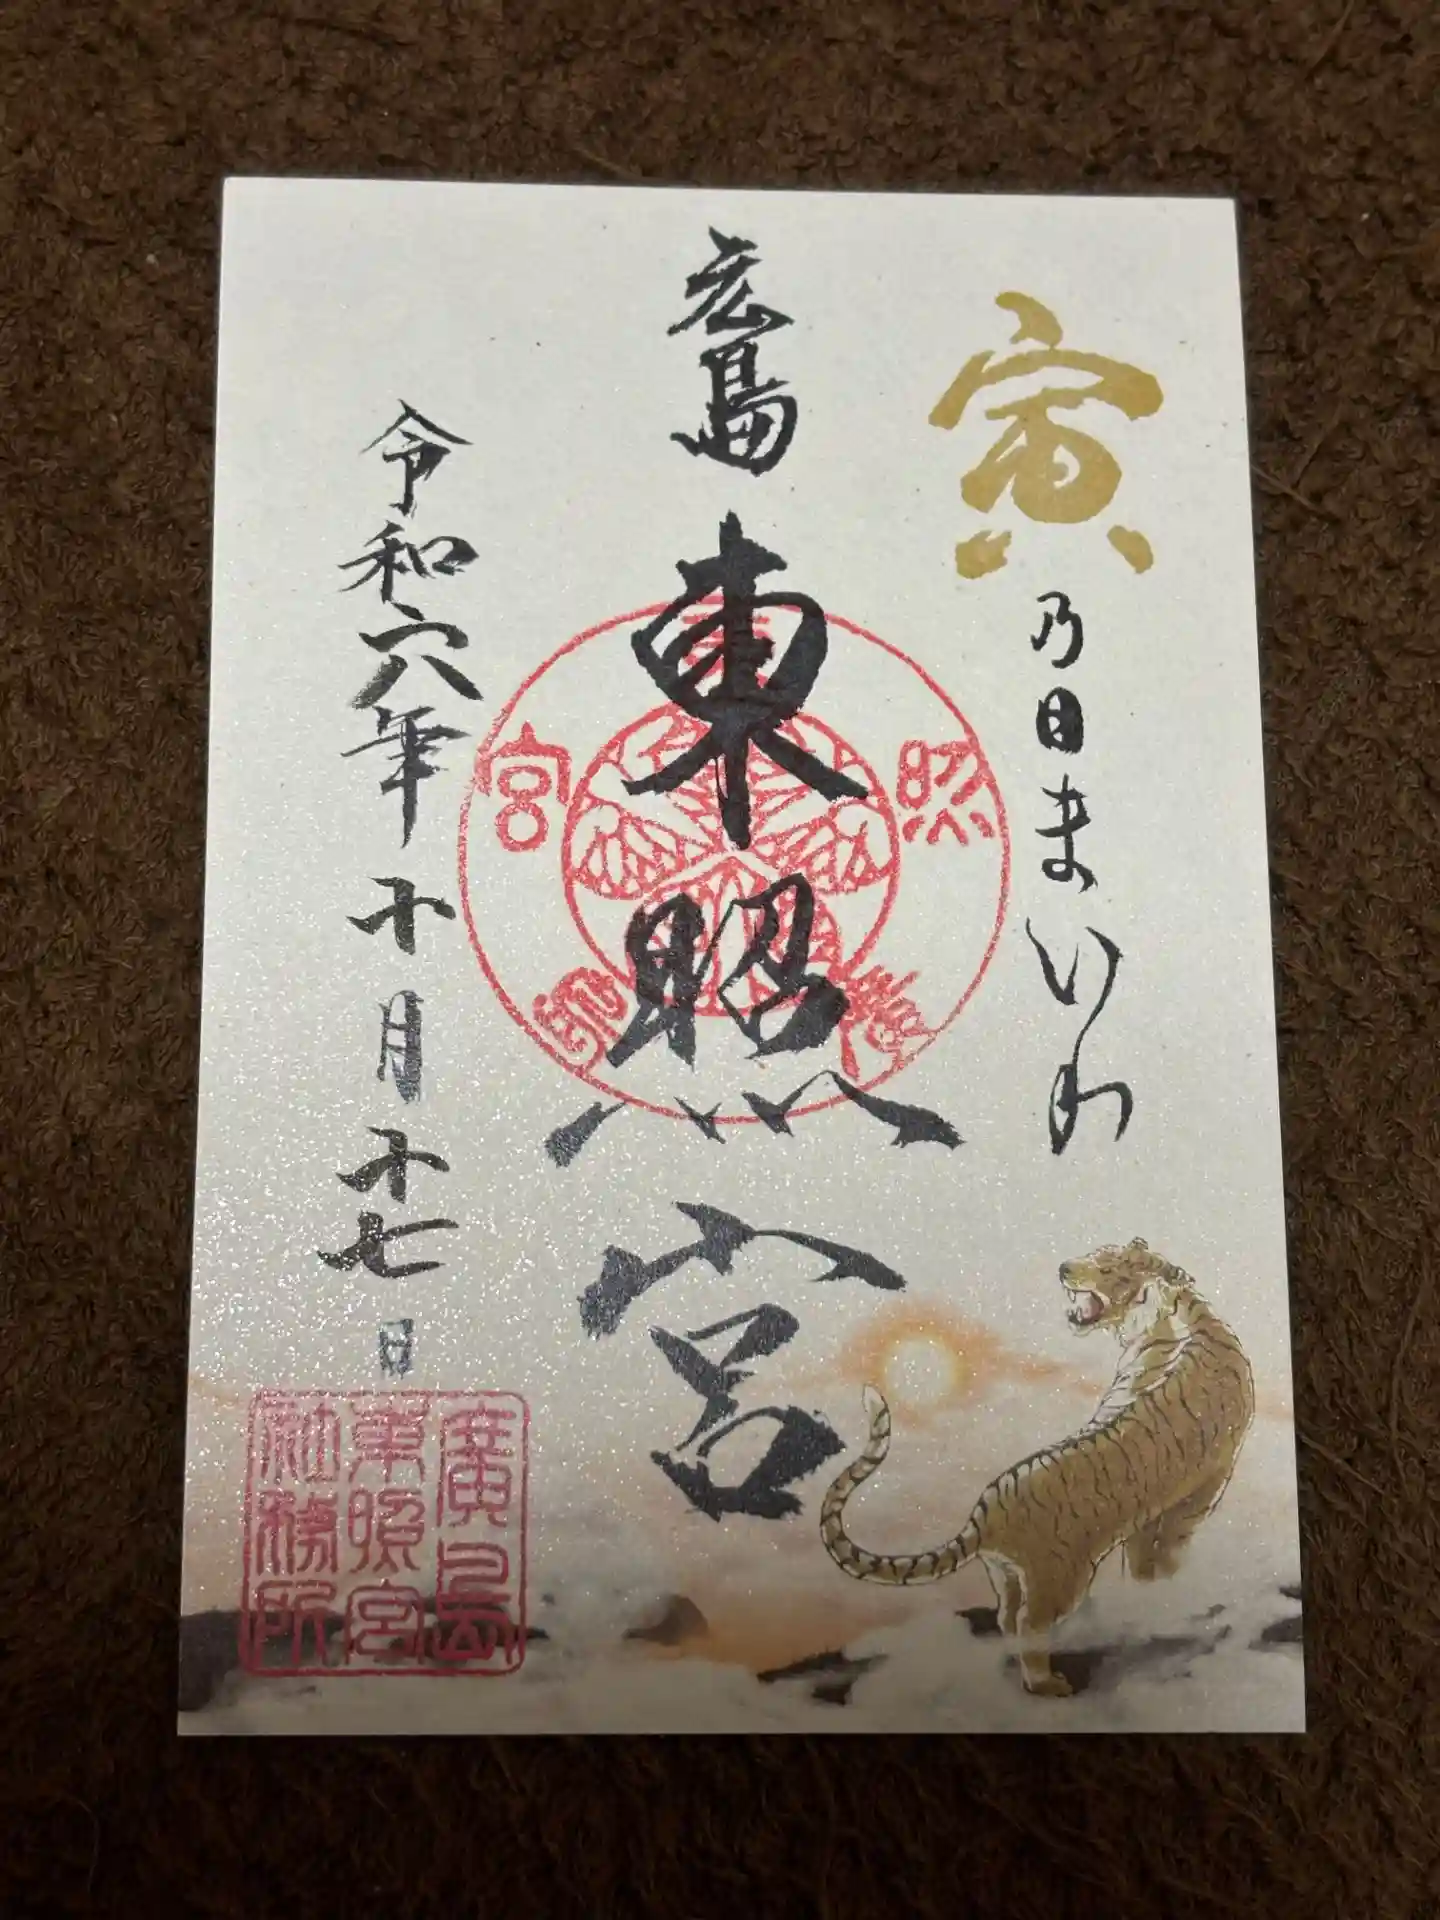 寅乃日まいり
広島東照宮
令和六年十月十七日
照
宮
廣島
東照宮
社務所